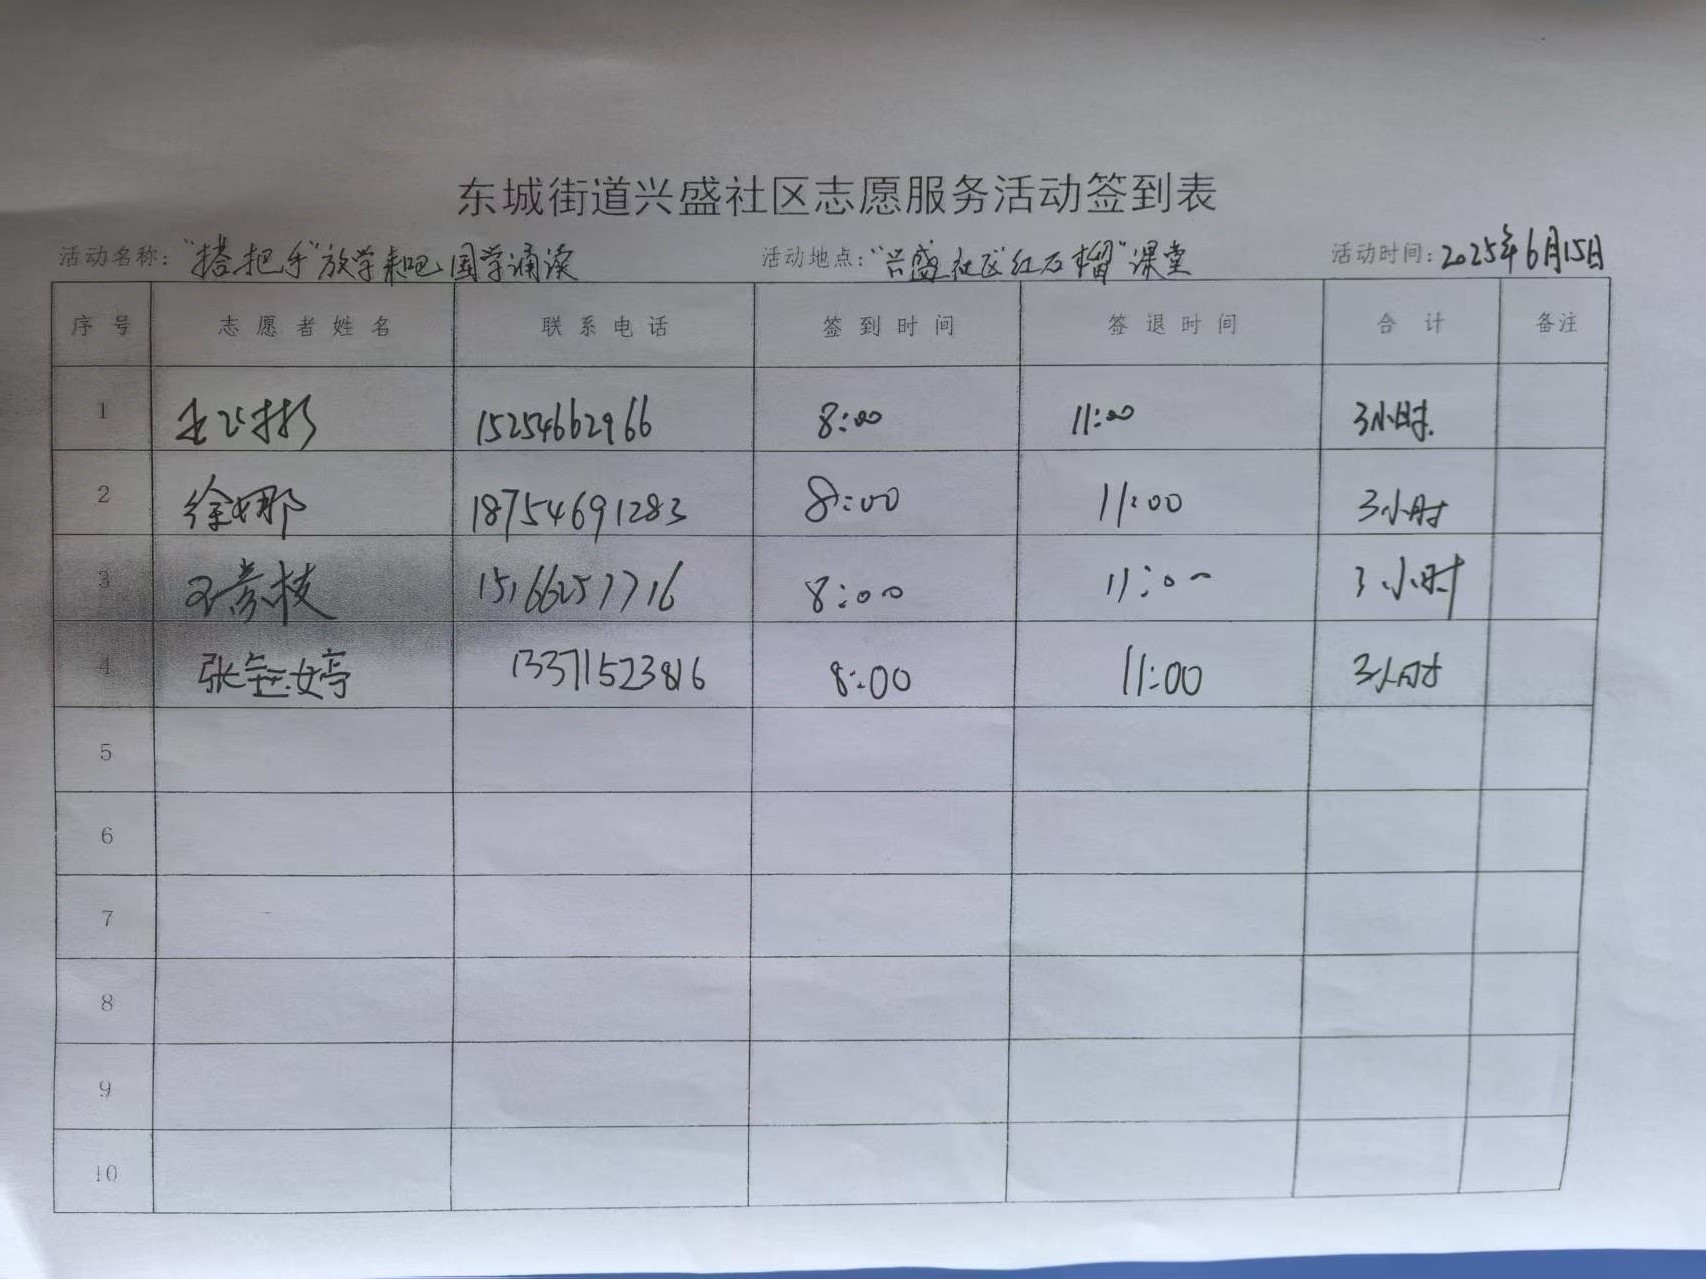 东城街道兴盛社区志愿服务活动签到表
活动名称："搭把手"放学来吧国学诵读 活动地点："兴盛社区红石榴"课堂 活动时间：2025年6月15日
序号 志愿者姓名 联系电话 签到时间 签退时间 合计 备注
1 15254662966 8:00 11:00 3小时.
2 徐娜 18754691283 8:00 11:00 3小时
3 王彦枝 15166257716 8:00 11:00 3小时
4 张婷 13371523816 8:00 11:00 3小时
5
6
7
8
9
10